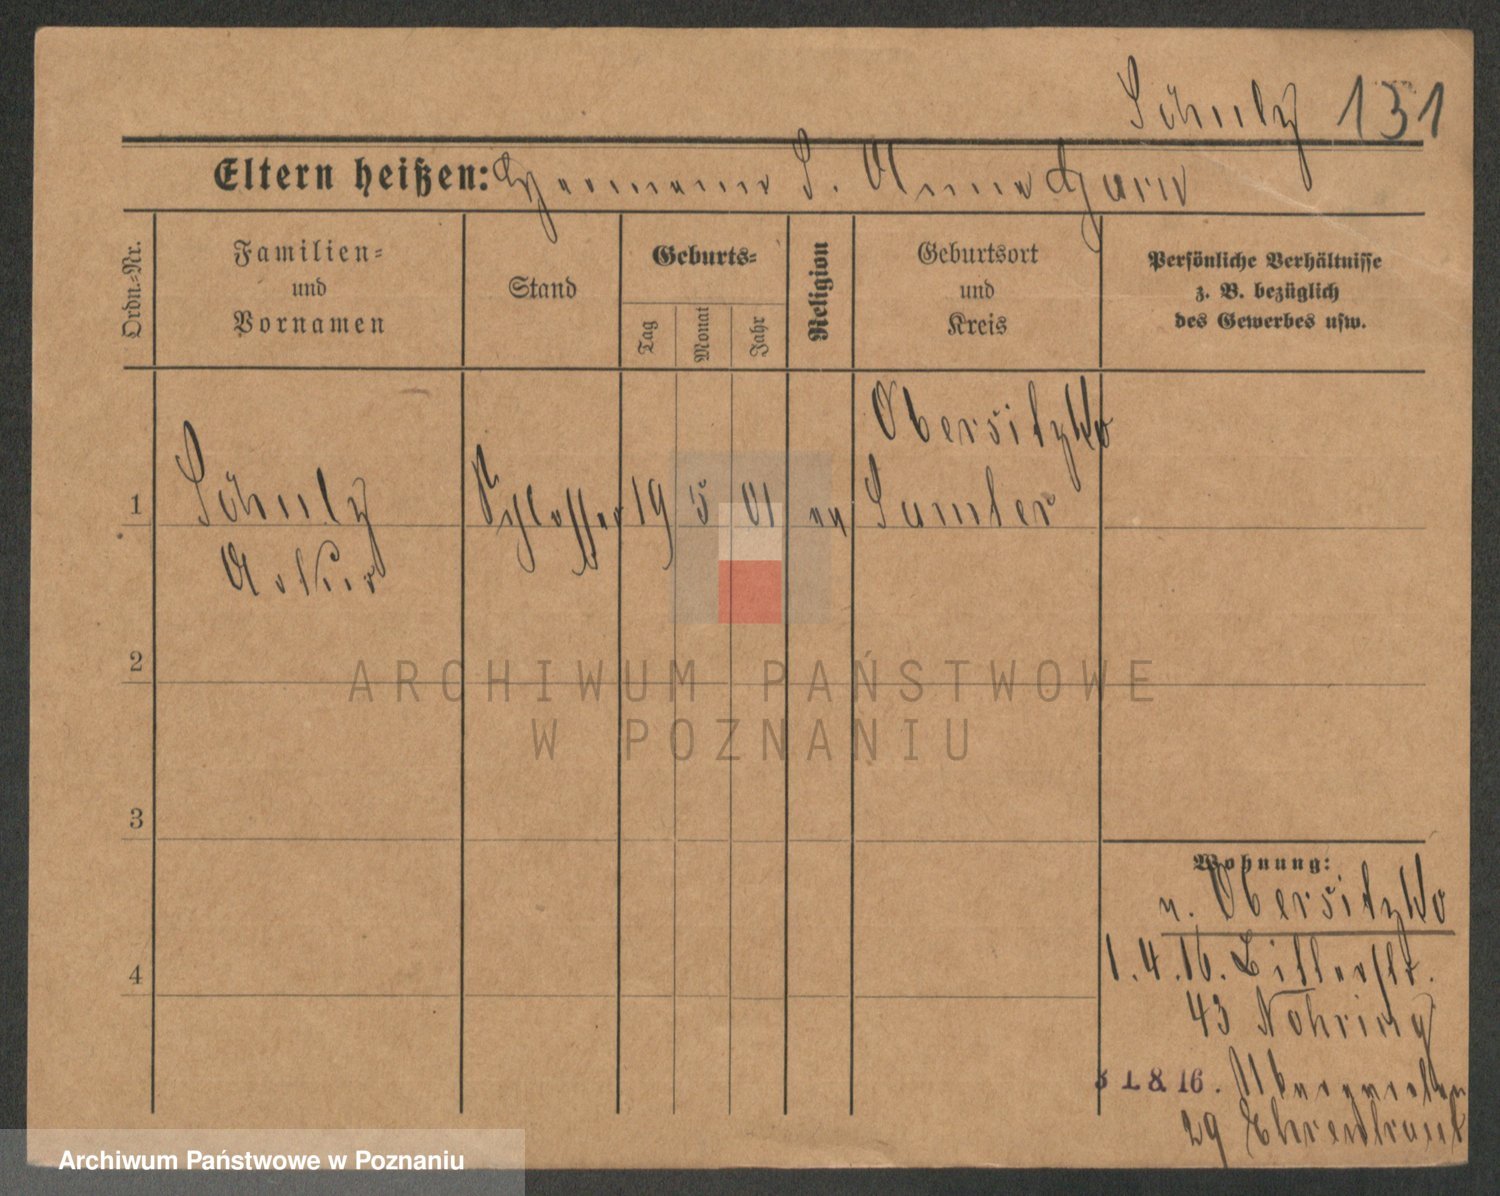 Schulz 131
Eltern heißen: Hermann S. Anna Garn
Ordn.-Nr.
Familien-
und
Vornamen
Stand
Geburts-
Tag
Monat
Jahr
Religion
Geburtsort
und
Kreis
Persönliche Verhältnisse
z. B. bezüglich
des Gewerbes usw.
1 Schulz Schlosser 19 5 01 Obersitzko
Samter
Artur
2
ARCHIWUM PAŃSTWOWE
W POZNANIU
3
Wohnung:
v. Obersitzko
4
1.4.16.
43 Nöhring
31.8.16.
29 Ehrentraut
Archiwum Państwowe w Poznaniu